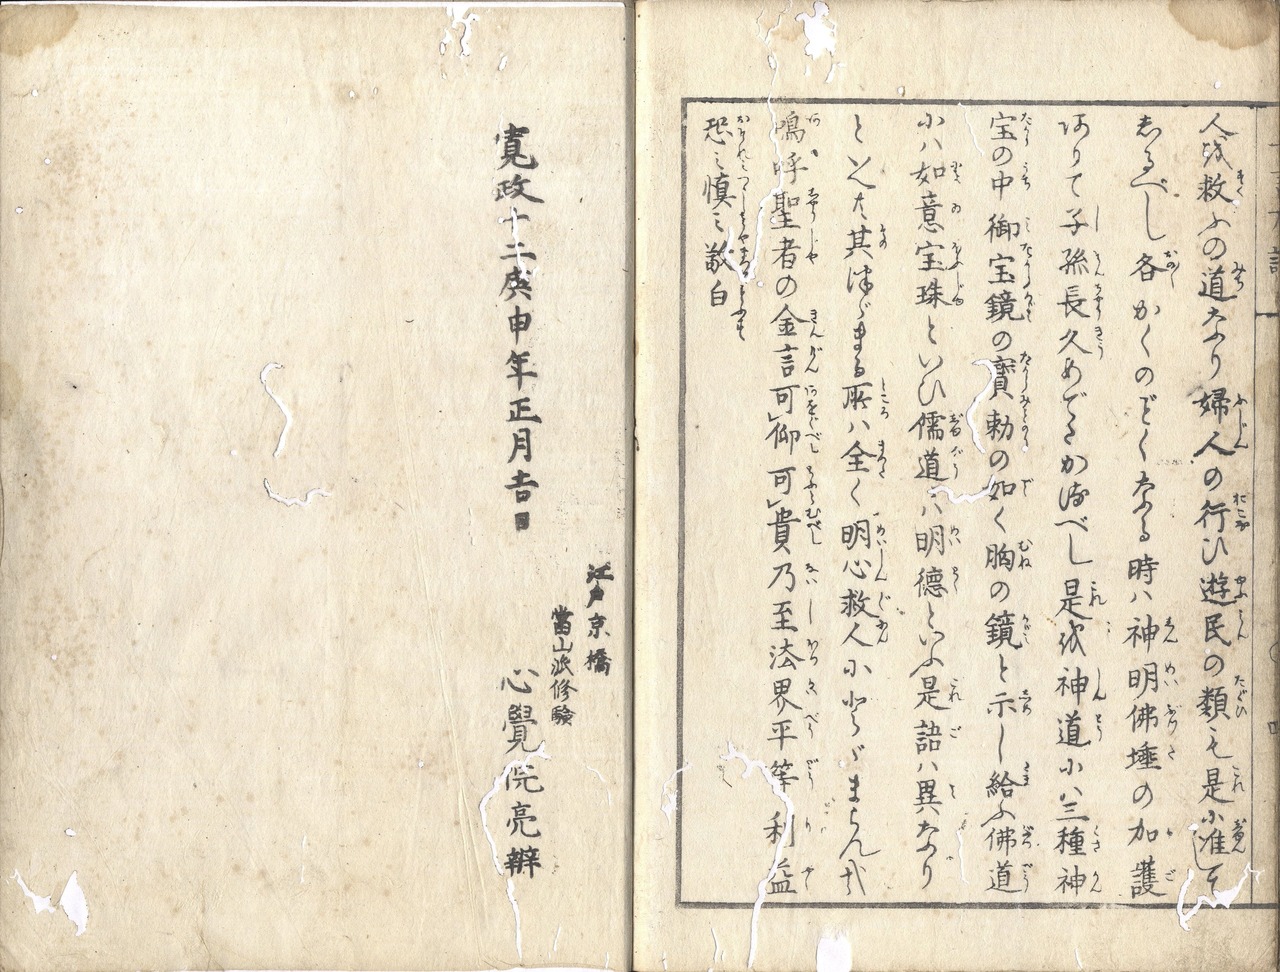 人を救ふの道なり婦人の行ひ遊民の類も是に准じて
しるべし各かくのごとくなる時ハ神明佛埵の加護
ありて子孫長久めでたかるべし是を神道にハ三種神
宝の中御宝鏡の寳勅の如く胸の鏡と示し給ふ佛道
にハ如意宝珠といひ儒道ハ明徳といふ是語ハ異なり
といへ共其つゞまる所ハ全く明心救人にとゞまらん哉
嗚呼聖者の金言可仰可貴乃至法界平等利益
恐ミ慎ミ敬白
寛政十二庚申年正月吉日
江戸京橋
當山派修験
心覺院亮辨